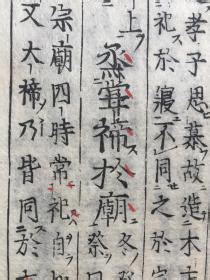 孝子思慕故造木主
祀於寢不同之於
上
烝嘗禘於廟冬祭
宗廟四時常祀自
文大禘乃皆同於